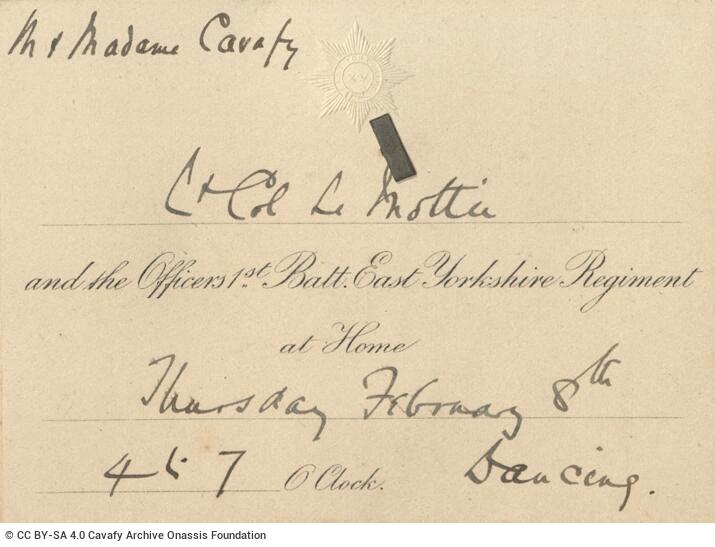 Mr & Madame Cavafy
XV
Lt Col Le Mottée
and the Officers 1st Batt. East Yorkshire Regiment
at Home
Thursday February 8th
4 to 7 O'Clock. Dancing.
© CC BY-SA 4.0 Cavafy Archive Onassis Foundation